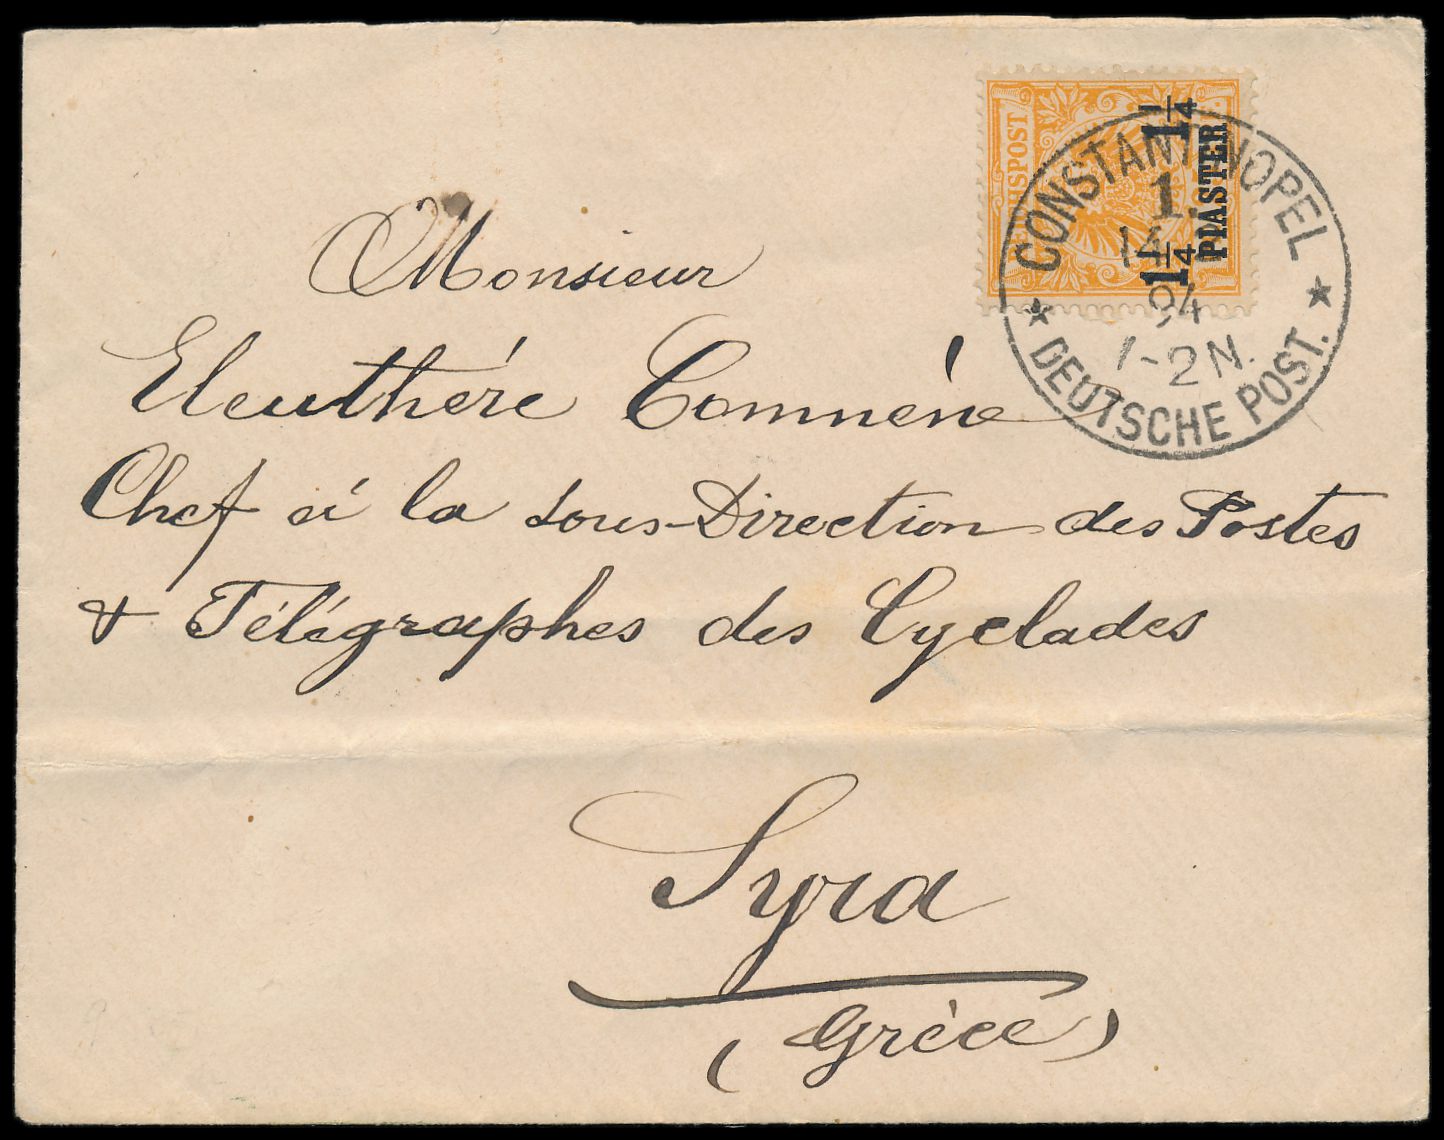 REICHSPOST
1 1/4 1 1/4
PIASTER
CONSTANTINOPEL
1.
14
94
1-2N.
* DEUTSCHE POST. *
Monsieur
Eleuthére Comnène
Chef à la sous-Direction des Postes
& Télégraphes des Cyclades
Syra
(Grèce)